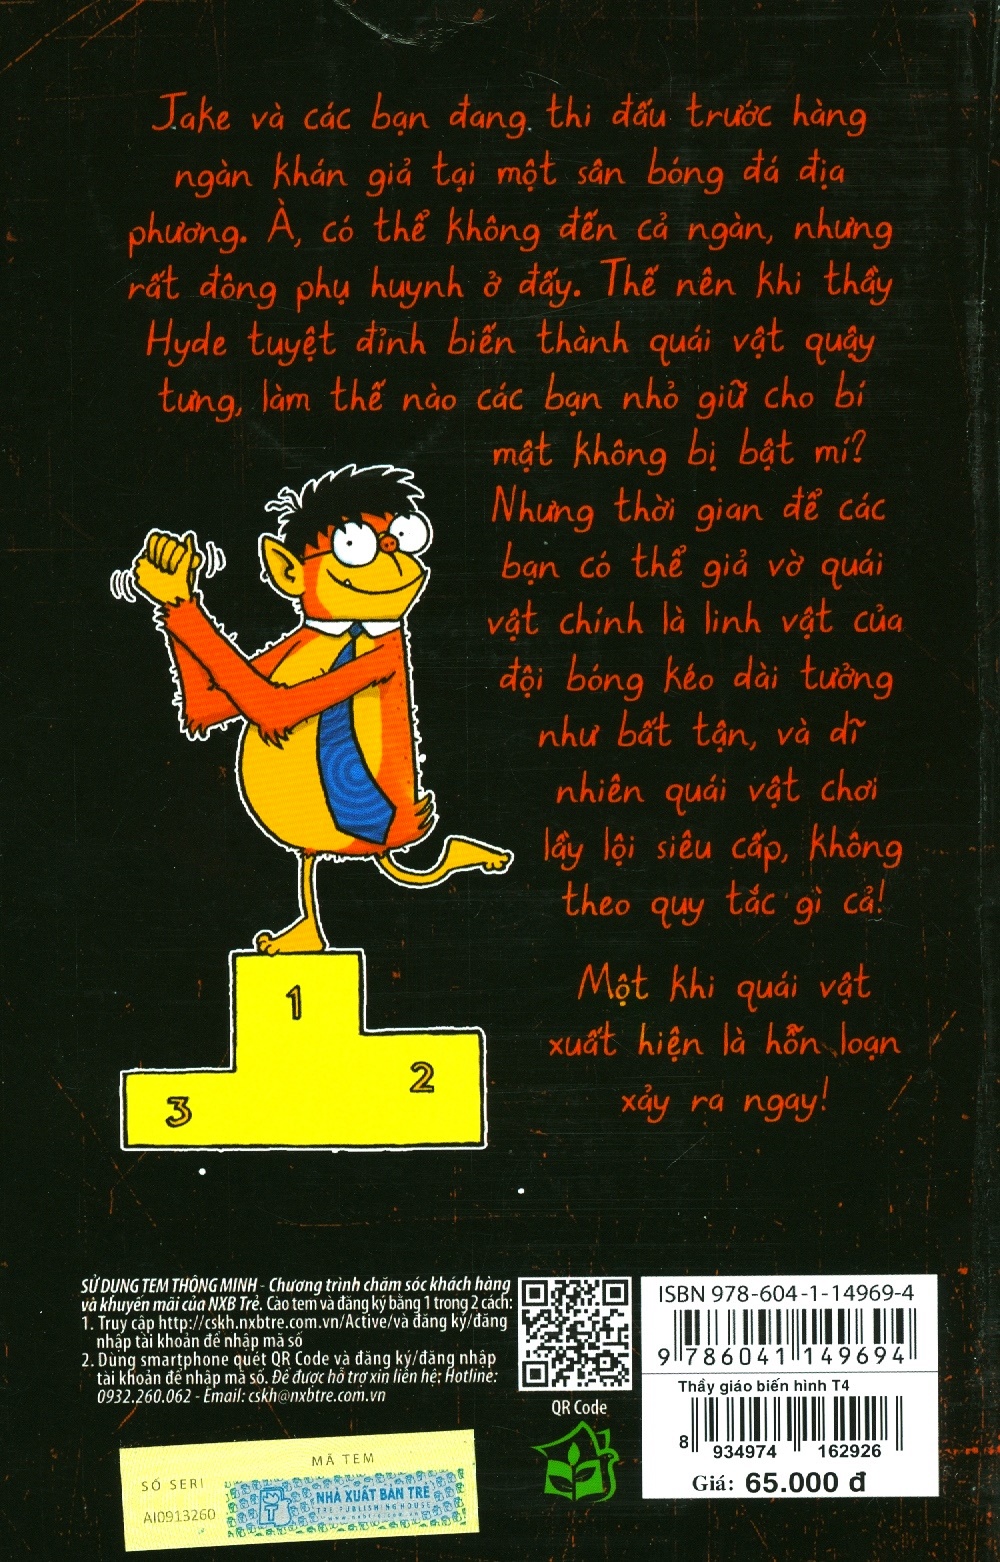 Jake và các bạn đang thi đấu trước hàng
ngàn khán giả tại một sân bóng đá địa
phương. À, có thể không đến cả ngàn, nhưng
rất đông phụ huynh ở đấy. Thế nên khi thầy
Hyde tuyệt đỉnh biến thành quái vật quậy
tưng, làm thế nào các bạn nhỏ giữ cho bí
mật không bị bật mí?
Nhưng thời gian để các
bạn có thể giả vờ quái
vật chính là linh vật của
đội bóng kéo dài tưởng
như bất tận, và dĩ
nhiên quái vật chơi
lầy lội siêu cấp, không
theo quy tắc gì cả!
Một khi quái vật
xuất hiện là hỗn loạn
xảy ra ngay!
1
2
3
SỬ DỤNG TEM THÔNG MINH - Chương trình chăm sóc khách hàng
và khuyến mãi của NXB Trẻ. Cào tem và đăng ký bằng 1 trong 2 cách:
1. Truy cập http://cskh.nxbtre.com.vn/Active/và đăng ký/đăng
nhập tài khoản để nhập mã số
2. Dùng smartphone quét QR Code và đăng ký/đăng nhập
tài khoản để nhập mã số. Để được hỗ trợ xin liên hệ: Hotline:
0932.260.062 - Email: cskh@nxbtre.com.vn
QR Code
ISBN 978-604-1-14969-4
9 786041 149694
Thầy giáo biến hình T4
8 934974 162926
Giá: 65.000 đ
MÃ TEM
SỐ SERI
AI0913260
NHÀ XUẤT BẢN TRẺ
TRE PUBLISHING HOUSE